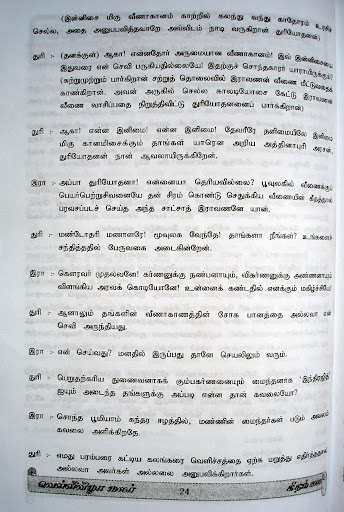 (இன்னிசை மிகு வீணாகானம் காற்றில் கலந்து வந்து காதோரம் உரசிச்
செல்ல, அதை அனுபவித்தவாறே அவ்விடம் நாடி வருகிறான் துரியோதனன்)
துரி :- (தனக்குள்) ஆகா! என்னதோர் அருமையான வீணாகானம்! இவ் இன்னிசையை
இதுவரை என் செவி பருகியதில்லையே! இதற்குச் சொந்தகாரர் யாராயிருக்கும்?
(சுற்றுமுற்றும் பார்கிறான் சற்றுத் தொலைவில் இராவணன் வீணை மீட்டுவதைக்
காண்கிறான். அவன் அருகில் செல்ல காலடியோசை கேட்டு இராவணன்
வீணை வாசிப்பதை நிறுத்திவிட்டு துரியோதனனைப் பார்க்கிறான்)
துரி :- ஆகா! என்ன இனிமை! என்ன இனிமை! தேவரீரே தனிமையிலே இனிமை
மிகு கானமிசைக்கும் தாங்கள் யாரென அறிய அத்தினாபுரி அரசன்,
துரியோதனன் நான் ஆவலாயிருக்கிறேன்.
இரா :- அப்பா துரியோதனா! என்னையா தெரியவில்லை? பூவுலகில் வீணைக்கும்
பெயர்பெற்றுசிவனையே தன் சிரம் கொண்டு செதுக்கிய வீணையின் கீதத்தால்
பரவசப்படச் செய்த அந்த சாட்சாத் இராவணனே யான்.
துரி :- மண்டோதரி மணாளரே! மூவுலக வேந்தே! தாங்களா நீங்கள்? உங்களைச்
சந்தித்ததில் பேருவகை அடைகின்றேன்.
இரா :- கௌரவர் முதல்வனே! கர்ணனுக்கு நண்பனாயும், விகர்ணனுக்கு அண்ணனாயும்
விளங்கிய அரவக் கொடியோனே! உன்னைக் கண்டதில் எனக்கும் மகிழ்ச்சியே!
துரி :- ஆனாலும் தங்களின் வீணாகாணத்தின் சோக பானத்தை அல்லவா என்
செவி அருந்தியது.
இரா :- என் செய்வது? மனதில் இருப்பது தானே செயலிலும் வரும்.
துரி :- பெறுதற்கரிய துணைவனாகக் கும்பகர்ணனையும் மைந்தனாக 'இந்திரஜித்'
ஐயும் அடைந்த தங்களுக்கு அப்படி என்ன தான் கவலையோ?
இரா :- சொந்த பூமியாம் சுந்தர ஈழத்தில், மண்ணின் மைந்தர்கள் படும் அவலம்
கவலை அளிக்கிறதே.
துரி :- எமது பரம்பரை கட்டிய கலங்கரை வெளிச்சத்தை ஏற்க மறுத்து எதிர்த்ததால்
அல்லவா அவர்கள் அல்லலை அனுபவிக்கிறார்கள்.
24